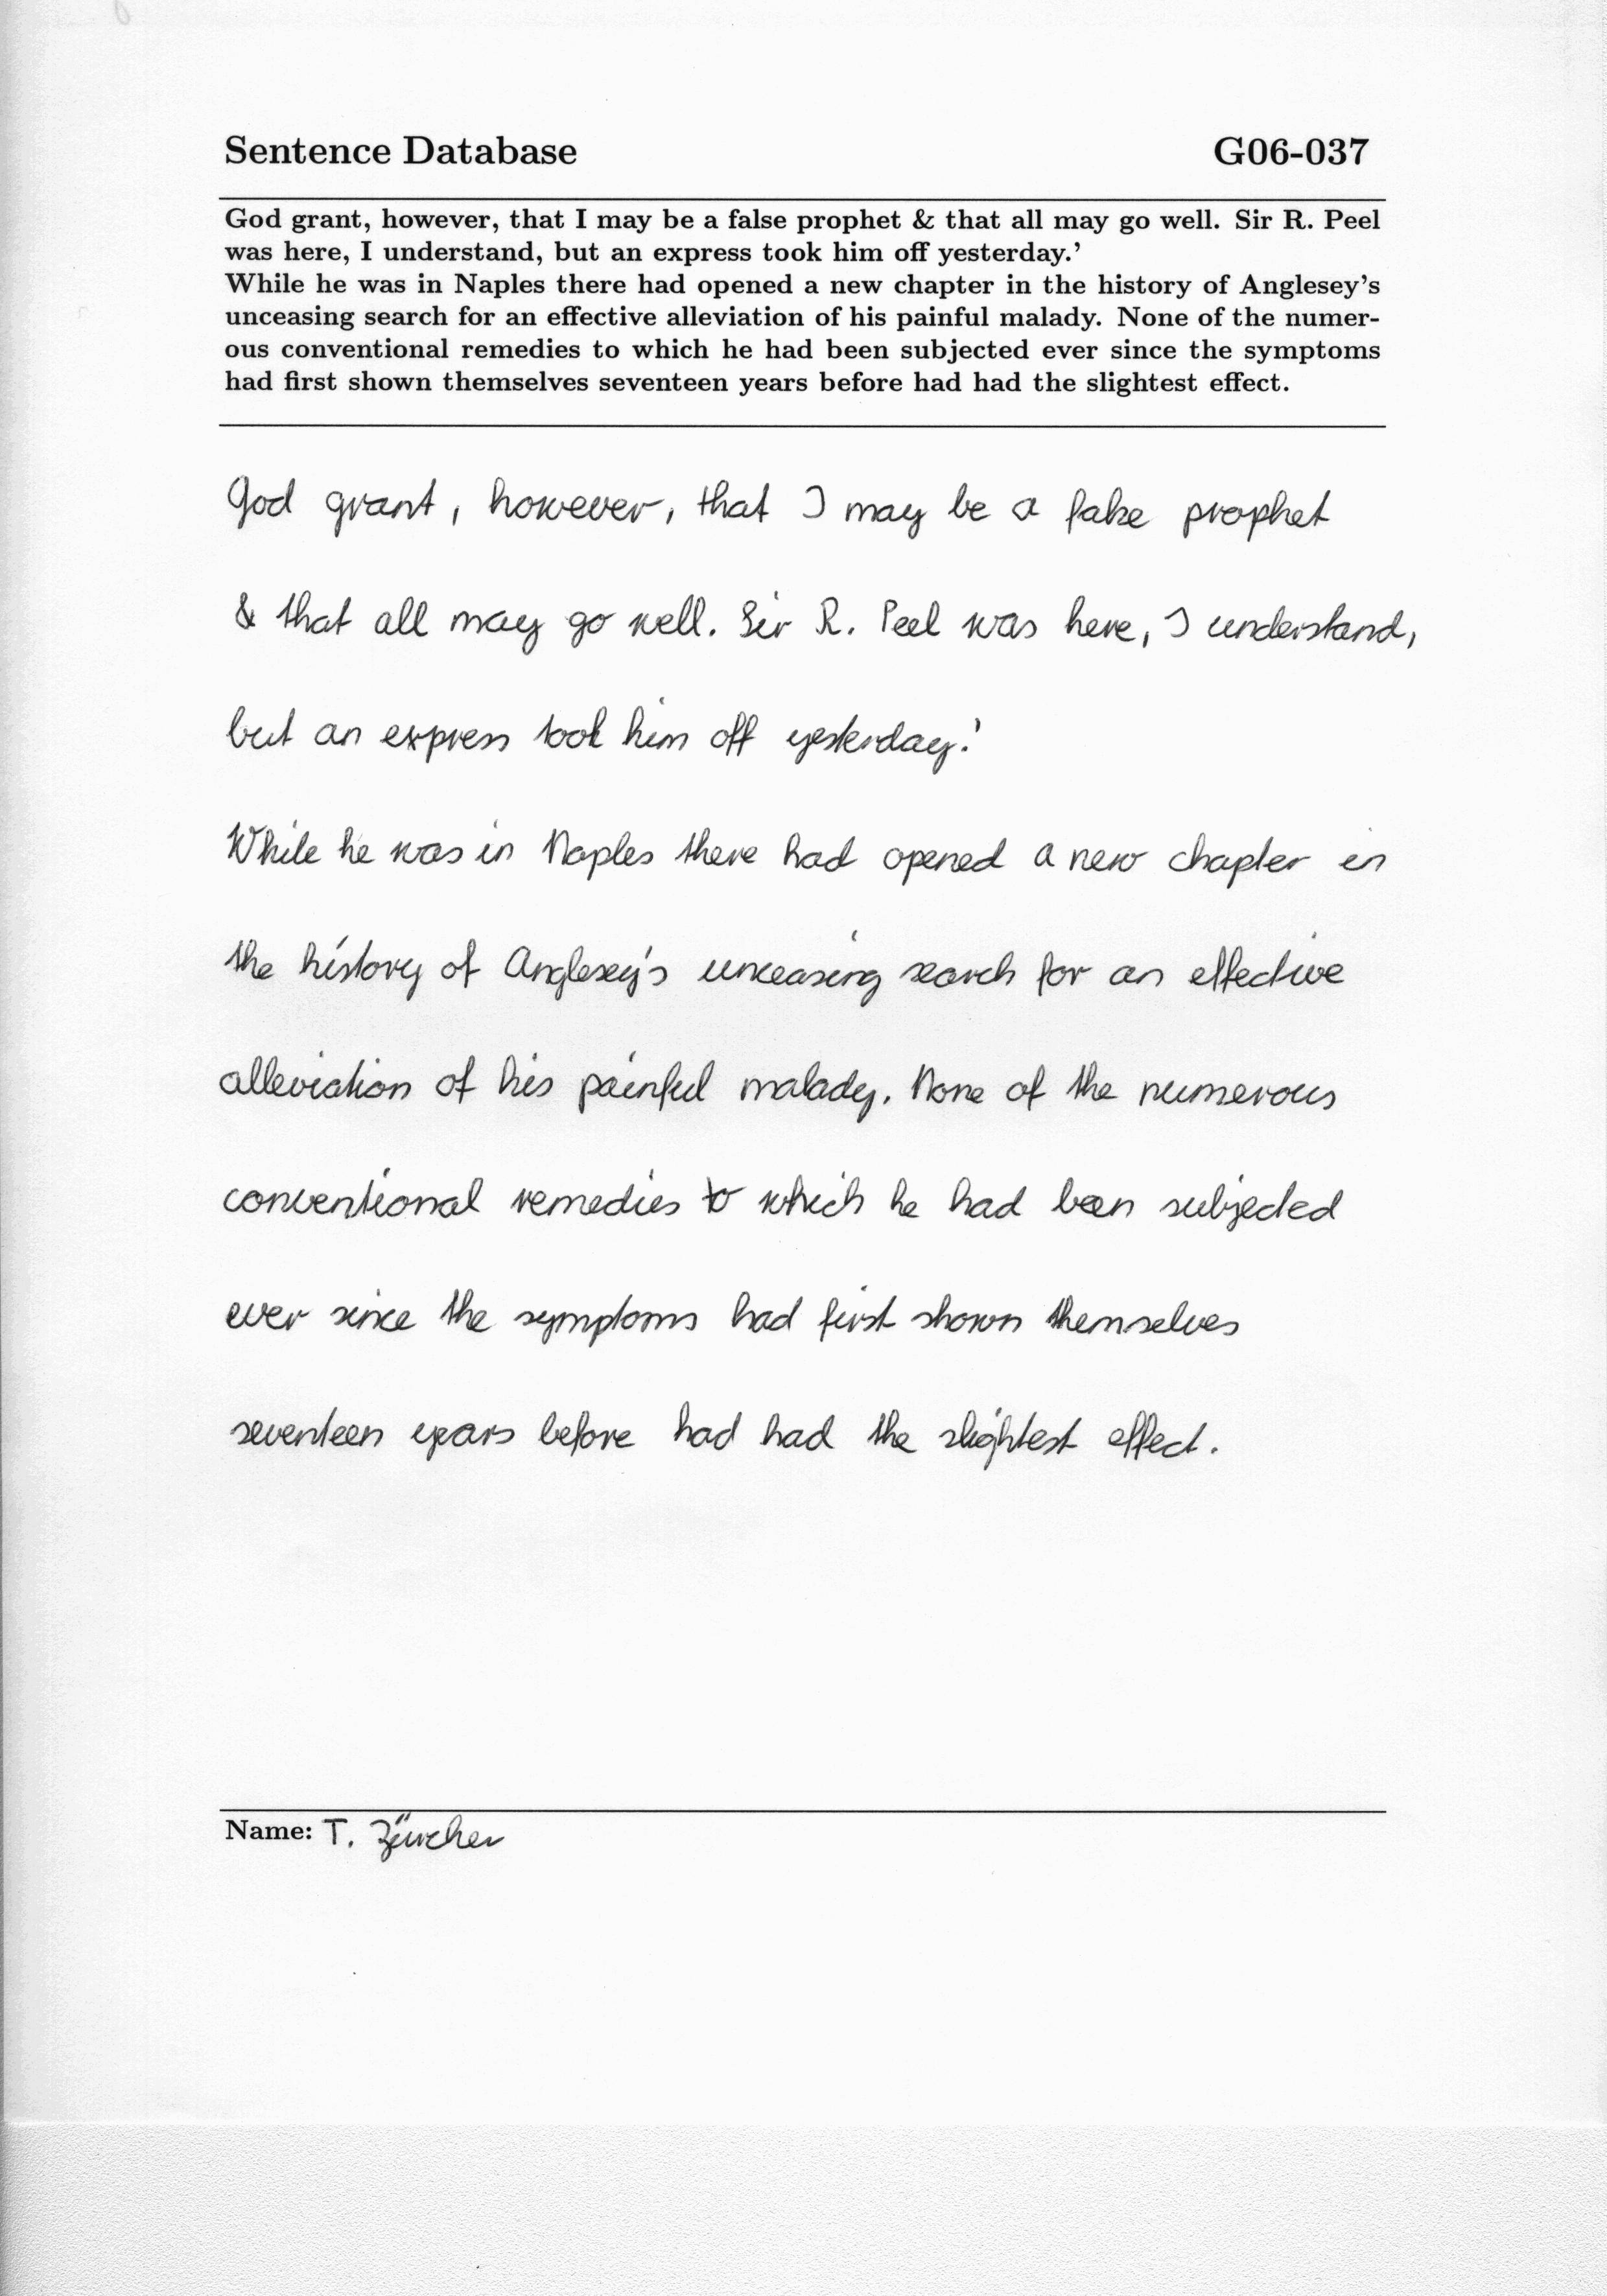 Sentence Database G06-037
God grant, however, that I may be a false prophet & that all may go well. Sir R. Peel
was here, I understand, but an express took him off yesterday.’
While he was in Naples there had opened a new chapter in the history of Anglesey’s
unceasing search for an effective alleviation of his painful malady. None of the numer-
ous conventional remedies to which he had been subjected ever since the symptoms
had first shown themselves seventeen years before had had the slightest effect.
God grant, however, that I may be a false prophet
& that all may go well. Sir R. Peel was here, I understand,
but an express took him off yesterday.'
While he was in Naples there had opened a new chapter in
the history of Anglesey's unceasing search for an effective
alleviation of his painful malady. None of the numerous
conventional remedies to which he had been subjected
ever since the symptoms had first shown themselves
seventeen years before had had the slightest effect.
Name: T. Zürcher